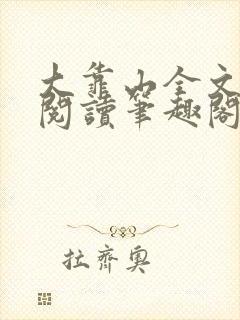 大靠山全文
閱讀筆趣閣
拉齊奧